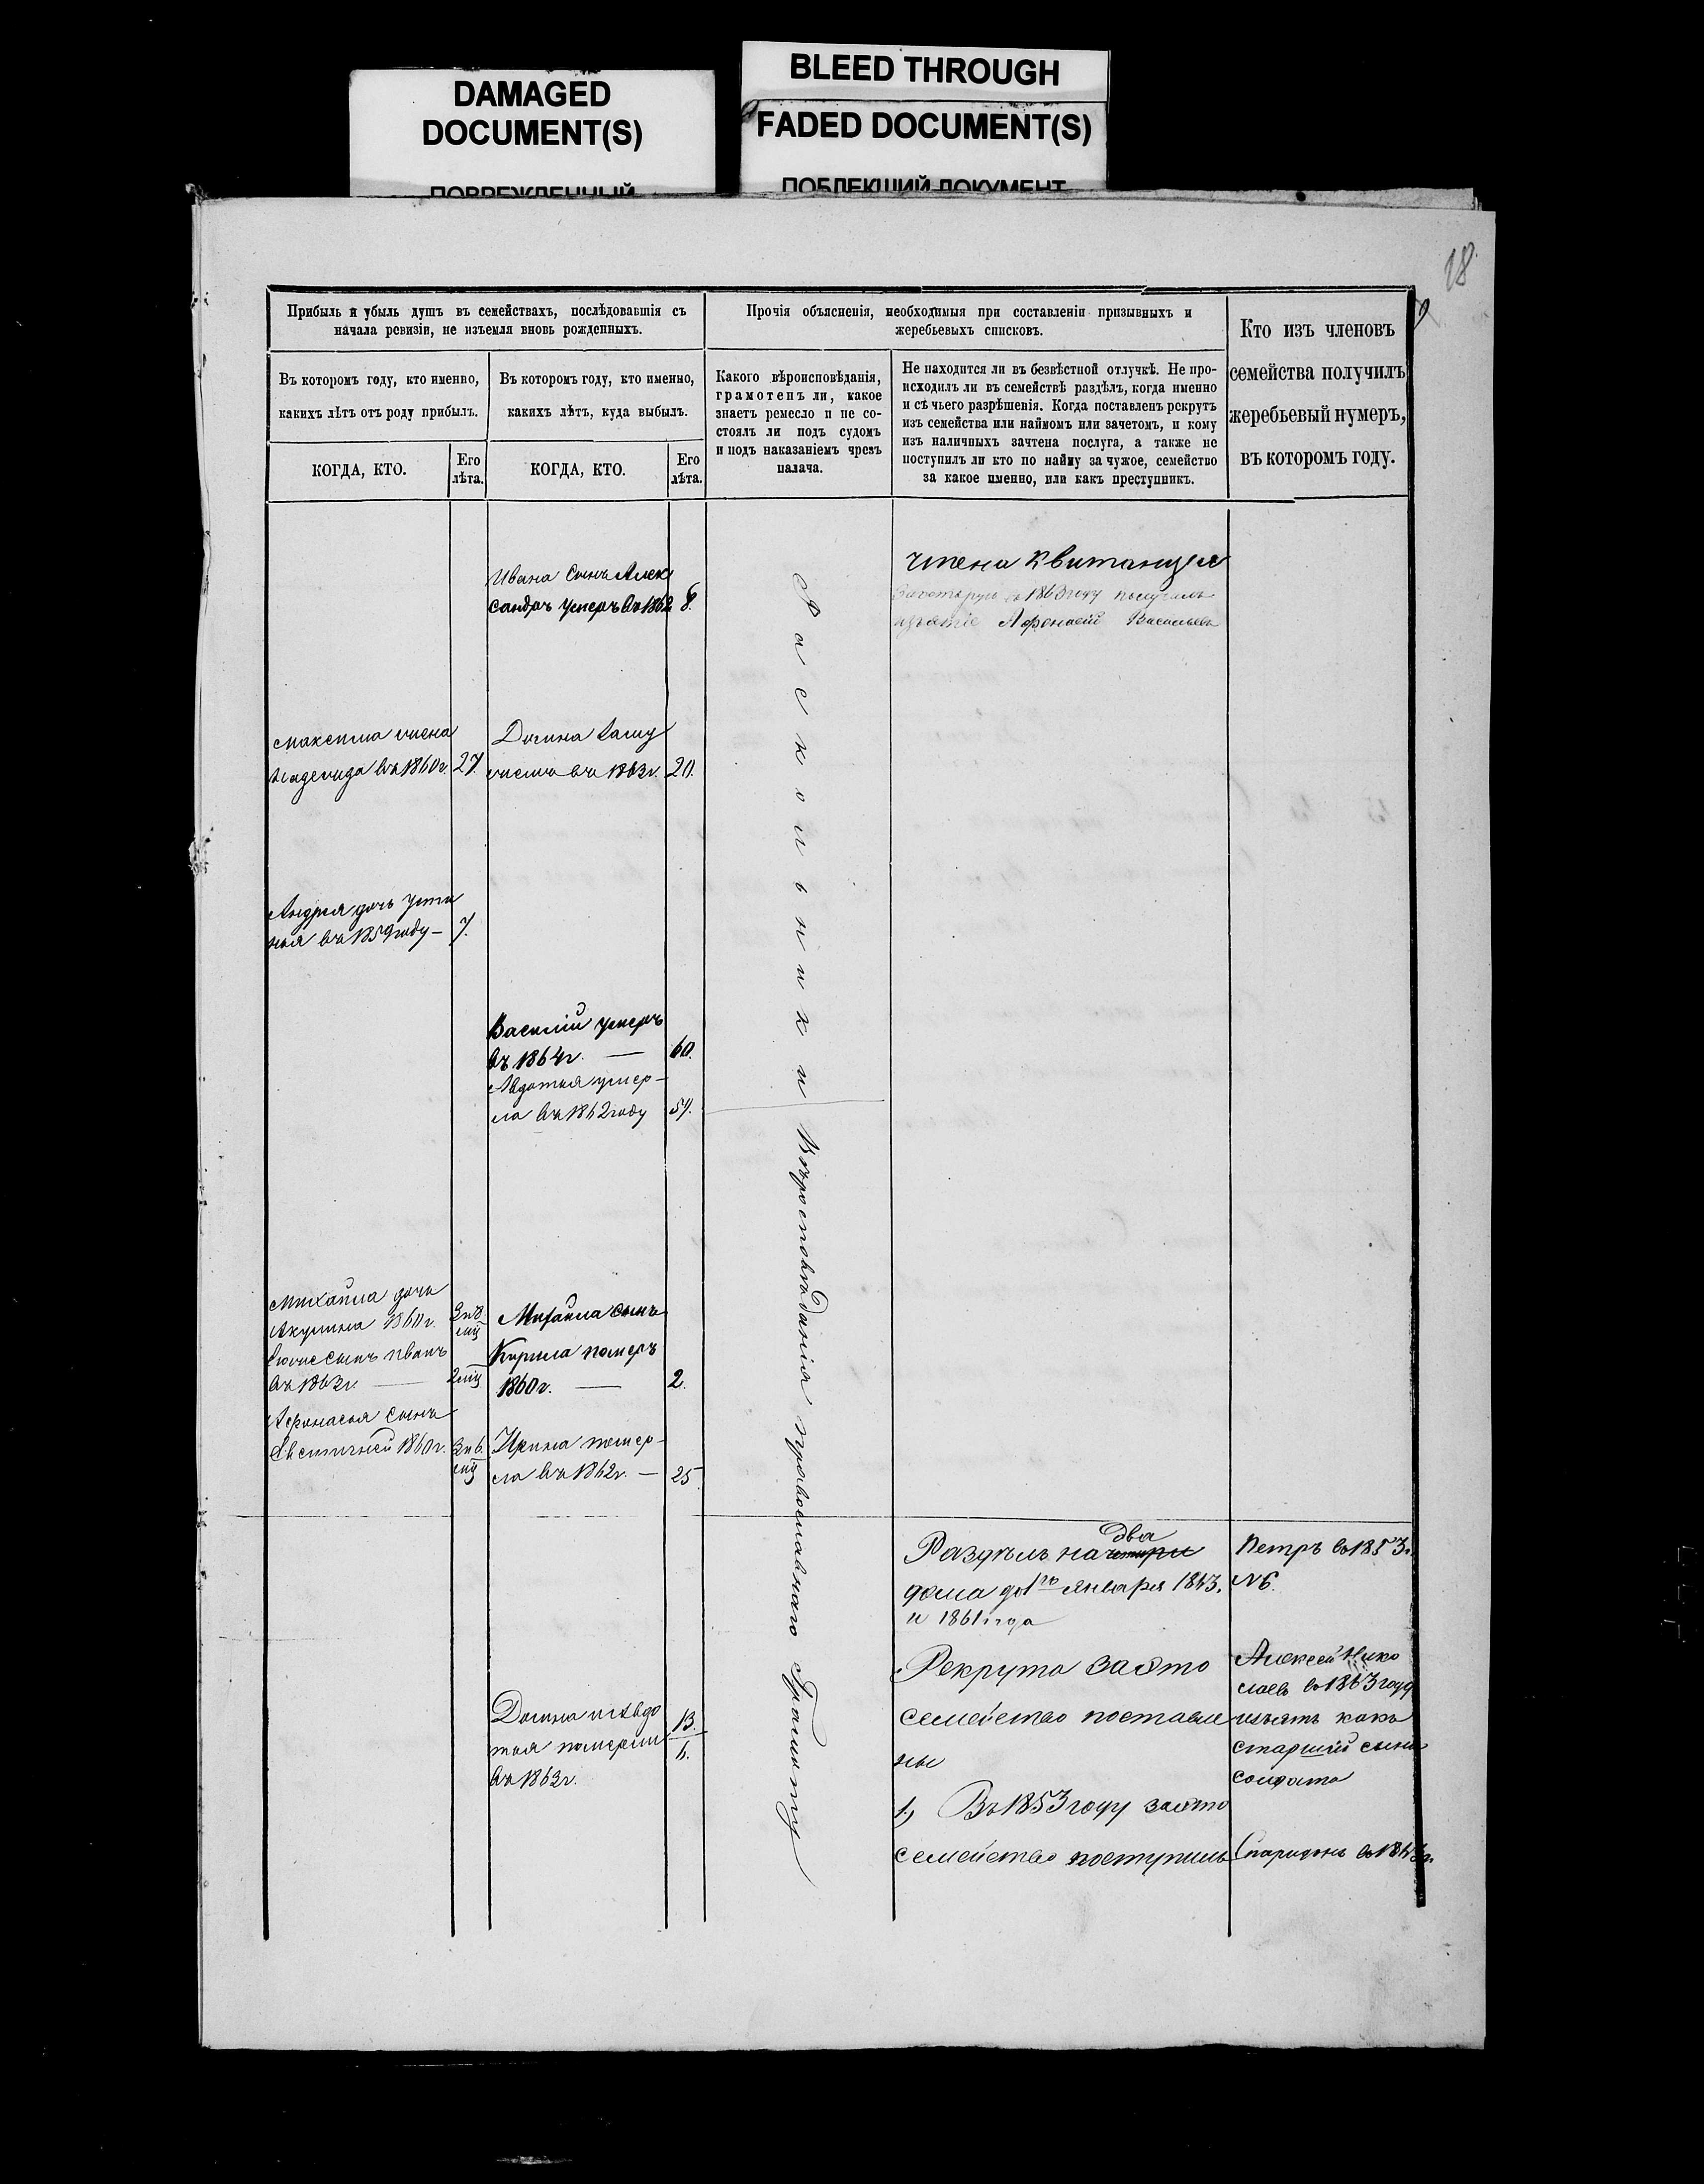 DAMAGED
DOCUMENT(S)
ПОВРЕЖДЕННЫЙ
BLEED THROUGH
FADED DOCUMENT(S)
ПОБЛЕКШИЙ ДОКУМЕНТ
18
Прибыль и убыль душъ въ семействахъ, послѣдовавшія съ
начала ревизіи, не изъемля вновь рожденныхъ.
Въ которомъ году, кто именно,
какихъ лѣтъ отъ роду прибылъ.
КОГДА, КТО.
Его
лѣта.
Въ которомъ году, кто именно,
какихъ лѣтъ, куда выбылъ.
КОГДА, КТО.
Его
лѣта.
Прочія объясненія, необходимыя при составленіи призывныхъ и
жеребьевыхъ списковъ.
Какого вѣроисповѣданія,
грамотенъ ли, какое
знаетъ ремесло и не со-
стоялъ ли подъ судомъ
и подъ наказаніемъ чрезъ
палача.
Не находится ли въ безвѣстной отлучкѣ. Не про-
исходилъ ли въ семействѣ раздѣлъ, когда именно
и съ чьего разрѣшенія. Когда поставленъ рекрутъ
изъ семейства или наймомъ или зачетомъ, и кому
изъ наличныхъ зачтена послуга, а также не
поступилъ ли кто по найму за чужое, семейство
за какое именно, или какъ преступникъ.
Кто изъ членовъ
семейства получилъ
жеребьевый нумеръ,
въ которомъ году.
Максима жена
Надежда въ 1860г. 27.
Андрея дочь Усти
нья въ 1859 году — 7.
Михайла дочь
Акулина 1860г. 3 и 8 мц
сынъ Иванъ
въ 1863г. — 2 мц
Афонасья сынъ
Евстигней 1860г. 3 и 6 мц
Ивана сынъ Алек
сандръ умеръ въ 1862 8.
Домна замуж
въ 1863г. 20.
Василій умеръ
въ 1864г. — 60.
Авдотья умер-
ла въ 1862 году 57.
Михайла сынъ
Кирила померъ
1860г. — 2.
Ирина помер-
ла въ 1862г. — 25.
Домна и Авдо
тья померли
въ 1863г.
13.
6.
Раскольники
Вѣроисповѣданія православнаго
чтена квитанція
въ 1863 году получилъ
изъятіе Афонасій Васильевъ
Раздѣлъ на четыри два
дома до 1го января 1863.
и 1861 года
Рекрута за это
семейство поставле
ны
1) Въ 1853 году за это
семейство поступилъ
Петръ въ 1853.
№6.
Алексей Нико
лаевъ въ 1863 году
изъятъ какъ
старшій сынъ
солдата
Спиридонъ въ